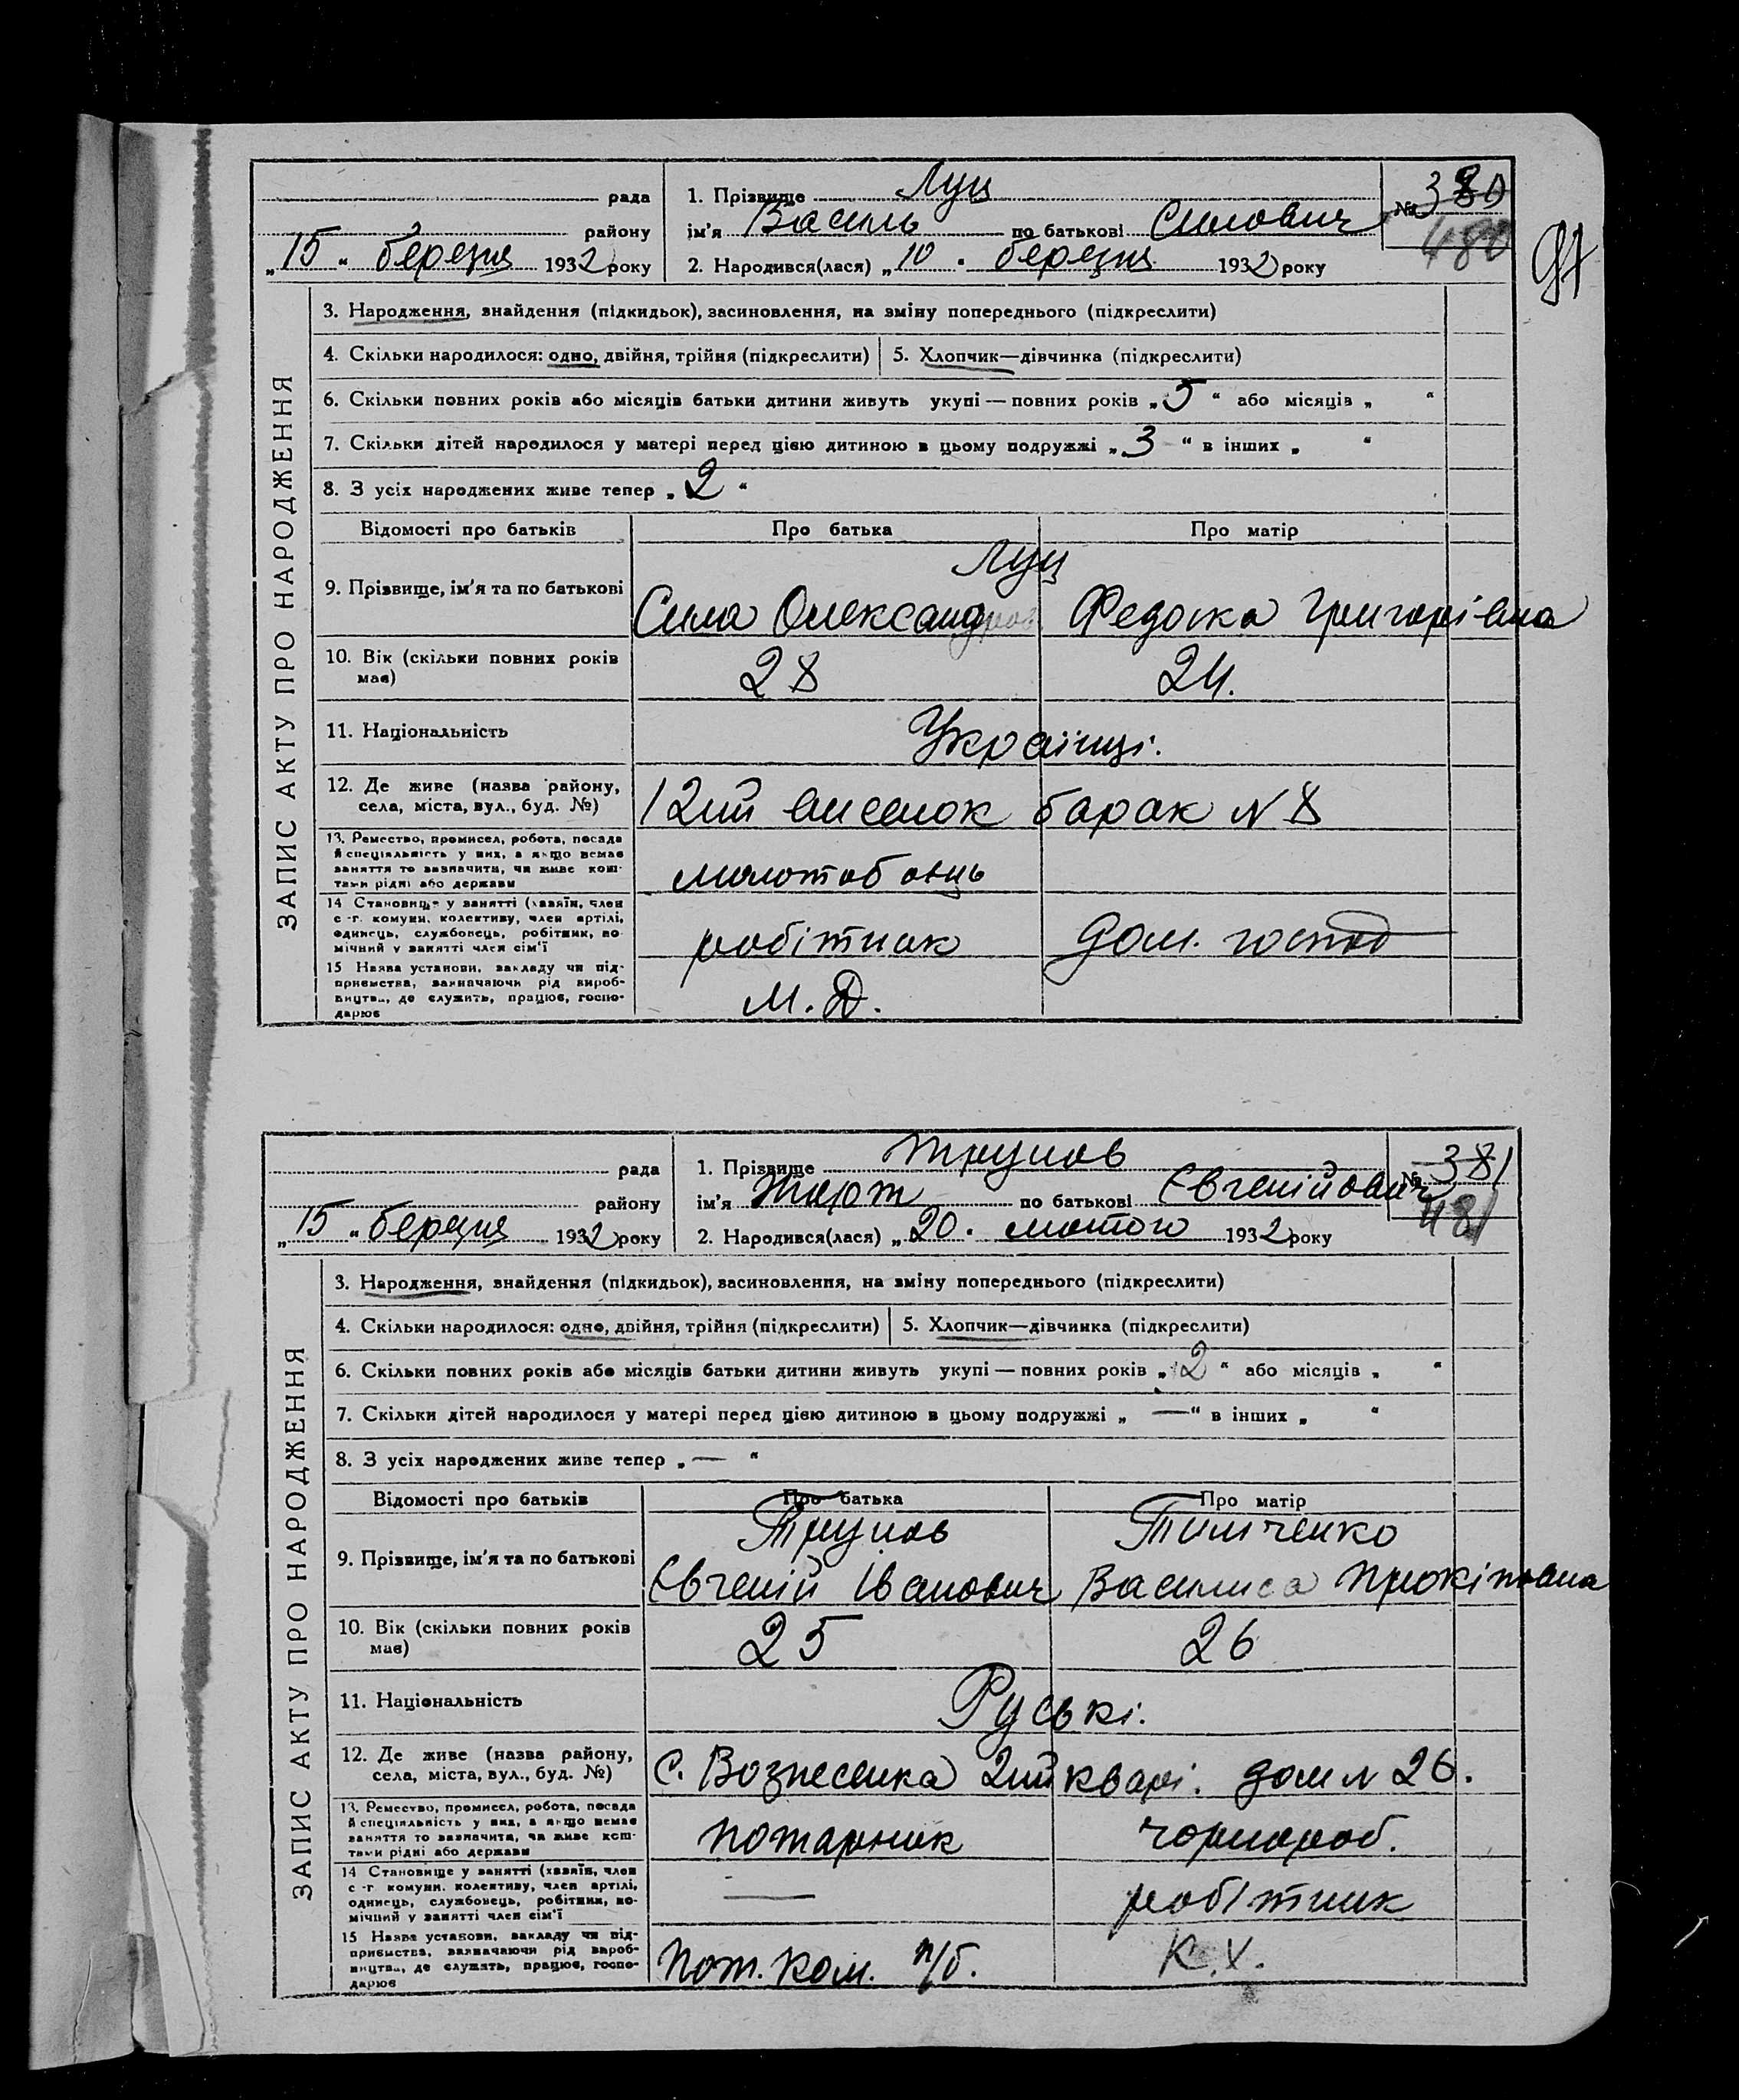 рада
1. Прізвище Луц
№ 380
480
97
району
ім'я Василь по батькові Силович
„15“ березня 1932 року
2. Народився(лася) „10“ березня 1932 року
ЗАПИС АКТУ ПРО НАРОДЖЕННЯ
3. Народження, знайдення (підкидьок), засиновлення, на зміну попереднього (підкреслити)
4. Скільки народилося: одно, двійня, трійня (підкреслити)
5. Хлопчик—дівчинка (підкреслити)
6. Скільки повних років або місяців батьки дитини живуть укупі — повних років „5“ або місяців „ “
7. Скільки дітей народилося у матері перед цією дитиною в цьому подружжі „3“ в інших „ “
8. З усіх народжених живе тепер „2“
Відомості про батьків
Про батька
Про матір
9. Прізвище, ім'я та по батькові
Луц
Сила Олександров
Федоска Григорівна
10. Вік (скільки повних років
має)
28
24.
11. Національність
Українці.
12. Де живе (назва району,
села, міста, вул., буд. №)
12ий виселок барак N 8
13. Ремество, промисел, робота, посада
й спеціяльність у них, а якщо немає
заняття то зазначити, чи живе кош-
тами рідні або держави
молотобоєць
14 Становище у занятті (хазяїн, член
с.-г. комуни, колективу, член артілі,
одинець, службовець, робітник, по-
мічний у занятті член сім'ї
робітник
дом. господ
15 Назва установи, закладу чи під-
приємства, зазначаючи рід вироб-
ництва, де служить, працює, госпо-
дарює
М. Д.
рада
1. Прізвище Трунов
№ 381
481
району
ім'я по батькові Євгенійович
„15“ березня 1932 року
2. Народився(лася) „20“ лютого 1932 року
ЗАПИС АКТУ ПРО НАРОДЖЕННЯ
3. Народження, знайдення (підкидьок), засиновлення, на зміну попереднього (підкреслити)
4. Скільки народилося: одно, двійня, трійня (підкреслити)
5. Хлопчик—дівчинка (підкреслити)
6. Скільки повних років або місяців батьки дитини живуть укупі — повних років „2“ або місяців „ “
7. Скільки дітей народилося у матері перед цією дитиною в цьому подружжі „—“ в інших „ “
8. З усіх народжених живе тепер „—“
Відомості про батьків
Про батька
Про матір
9. Прізвище, ім'я та по батькові
Трунов
Тимченко
Євгеній Іванович
Василиса Прокіповна
10. Вік (скільки повних років
має)
25
26
11. Національність
Руські.
12. Де живе (назва району,
села, міста, вул., буд. №)
С. Вознесенка 2ий кварт. дом N 26.
13. Ремество, промисел, робота, посада
й спеціяльність у них, а якщо немає
заняття то зазначити, чи живе кош-
тами рідні або держави
пожарник
чорнороб.
14 Становище у занятті (хазяїн, член
с.-г. комуни, колективу, член артілі,
одинець, службовець, робітник, по-
мічний у занятті член сім'ї
—
робітник
15 Назва установи, закладу чи під-
приємства, зазначаючи рід вироб-
ництва, де служить, працює, госпо-
дарює
Пож. Ком. п/б.
К. Х.